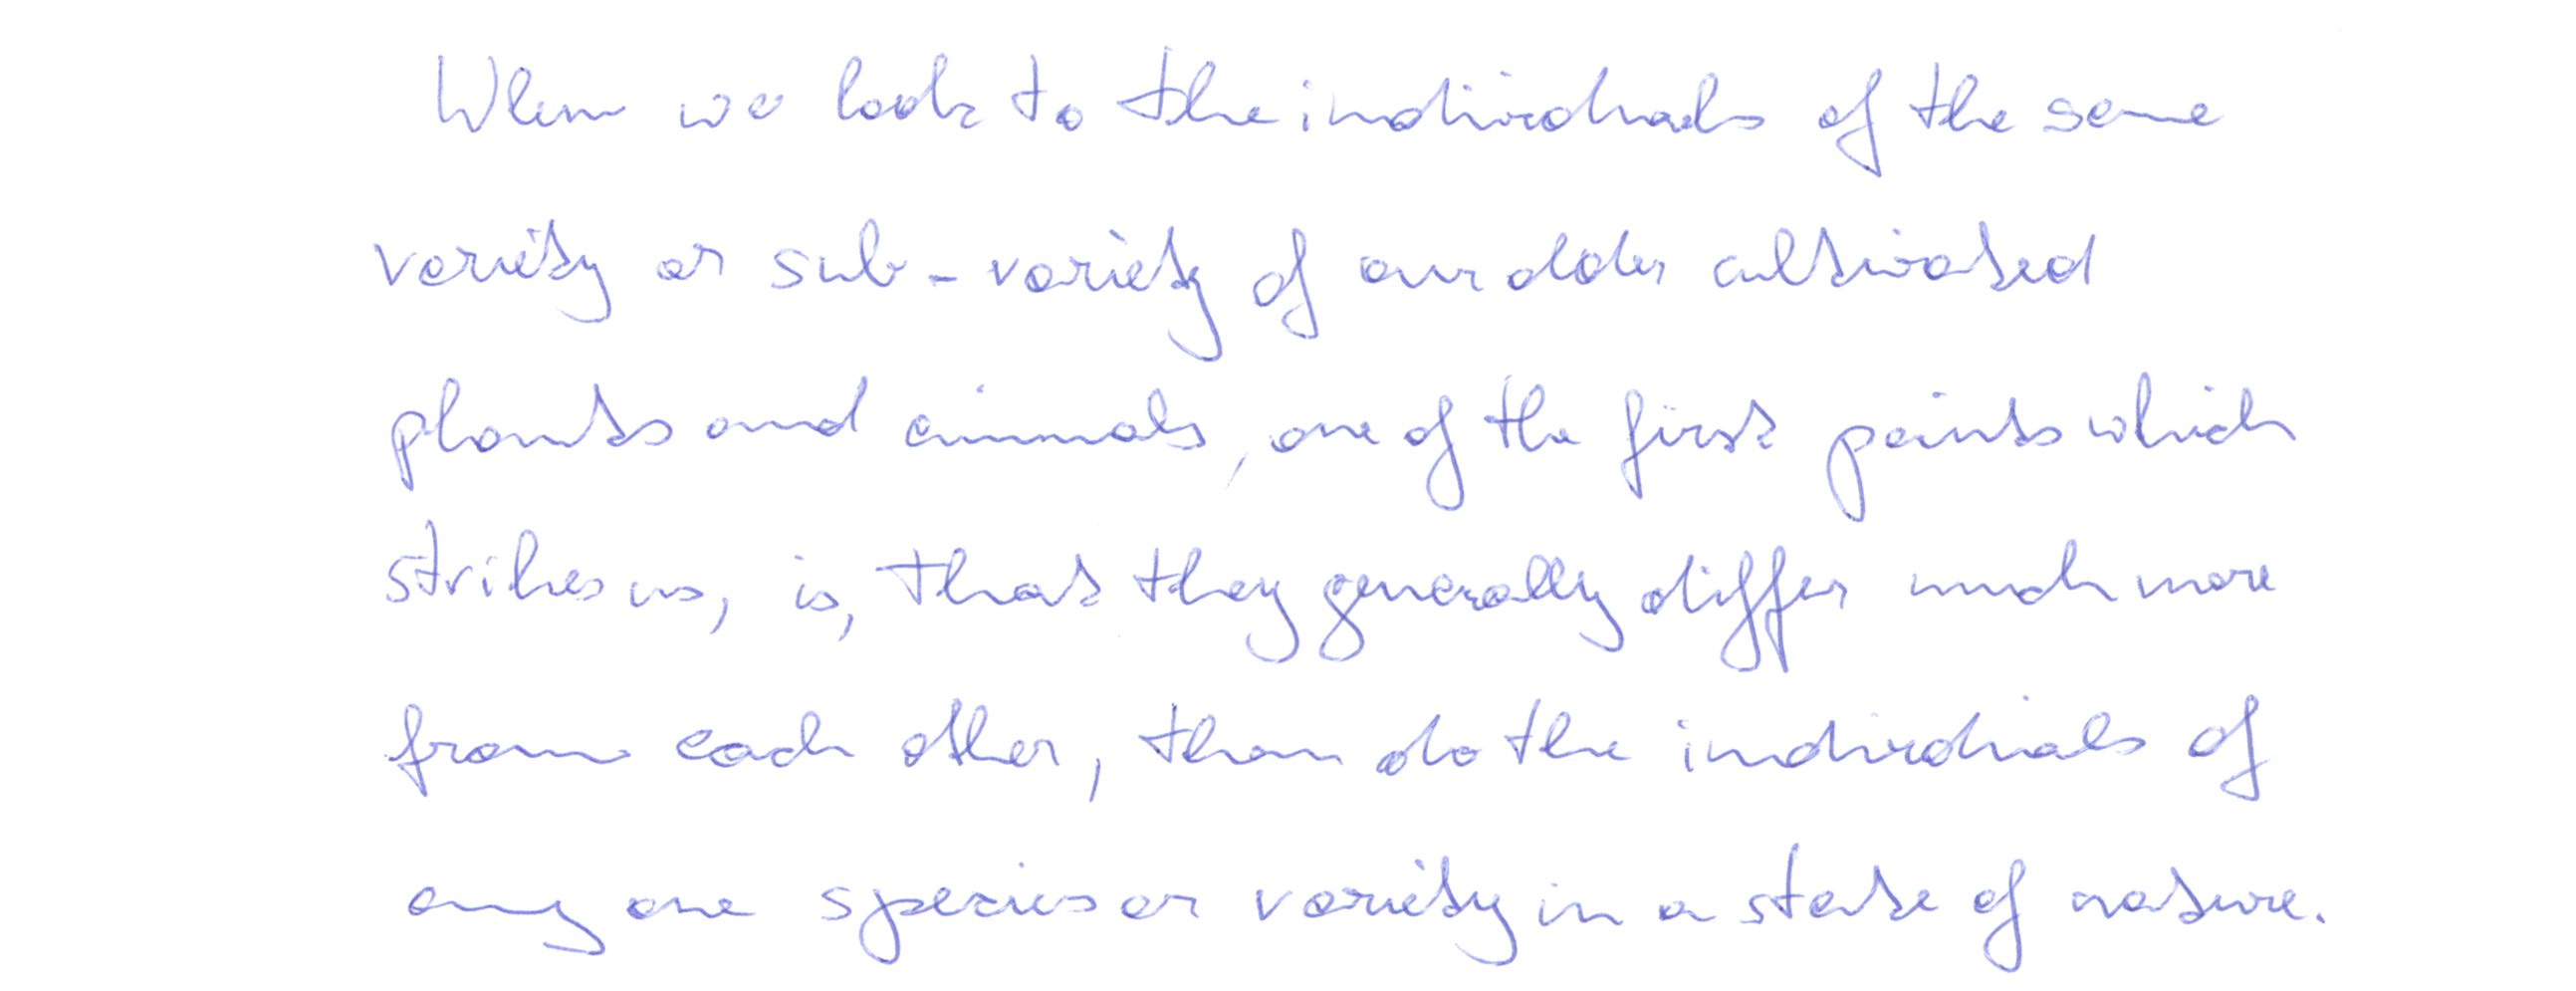 When we look to the individuals of the same
variety or sub-variety of our older cultivated
plants and animals, one of the first points which
strikes us, is, that they generally differ much more
from each other, than do the individuals of
any one species or variety in a state of nature.